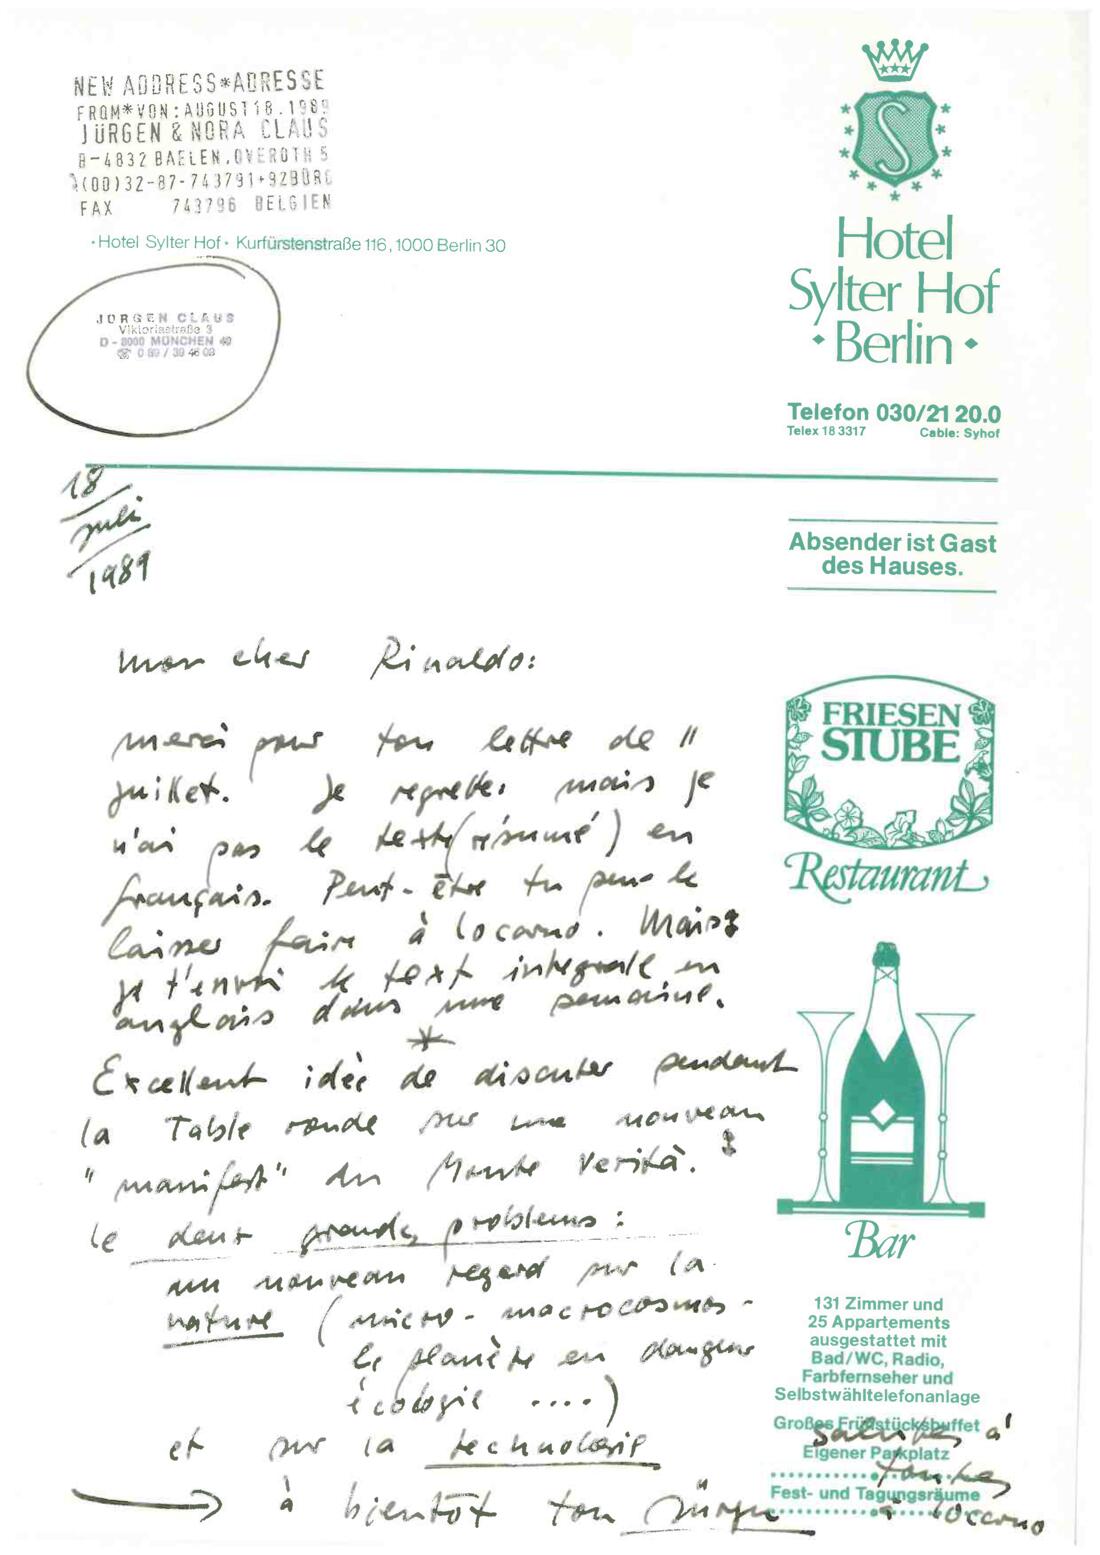 NEW ADDRESS*ADRESSE
FROM*VON:AUGUST 18.1989
JÜRGEN & NORA CLAUS
B-4832 BAELEN,OVEROTH 5
(00)32-87-743791+92BÜRO
FAX 743796 BELGIEN
• Hotel Sylter Hof • Kurfürstenstraße 116, 1000 Berlin 30
JÜRGEN CLAUS
Viktoriastraße 3
D - 8000 MÜNCHEN 40
☎ 0 89 / 39 46 03
S
Hotel
Sylter Hof
• Berlin •
Telefon 030/21 20.0
Telex 18 3317 Cable: Syhof
18
Juli
1989
Absender ist Gast
des Hauses.
Mon cher Rinaldo:
merci pour ton lettre de 11
juillet. Je regrette, mais je
n'ai pas le text (résumé) en
français. Peut-être tu peux le
laisser faire à Locarno. Mais
je t'envoi le text integrale en
anglais dans une semaine.
*
Excellent idée de discuter pendant
la Table ronde sur une nouveau
"manifest" du Monte Verità.
le deux grands problems:
un nouveau regard sur la
nature (micro-macrocosmos -
la planète en danger
écologie ....)
et sur la technologie
à bientôt ton Jürgen
salutes à
toutes
à Locarno
FRIESEN
STUBE
Restaurant
Bar
131 Zimmer und
25 Appartements
ausgestattet mit
Bad/WC, Radio,
Farbfernseher und
Selbstwähltelefonanlage
Großes Frühstücksbuffet
Eigener Parkplatz
Fest- und Tagungsräume